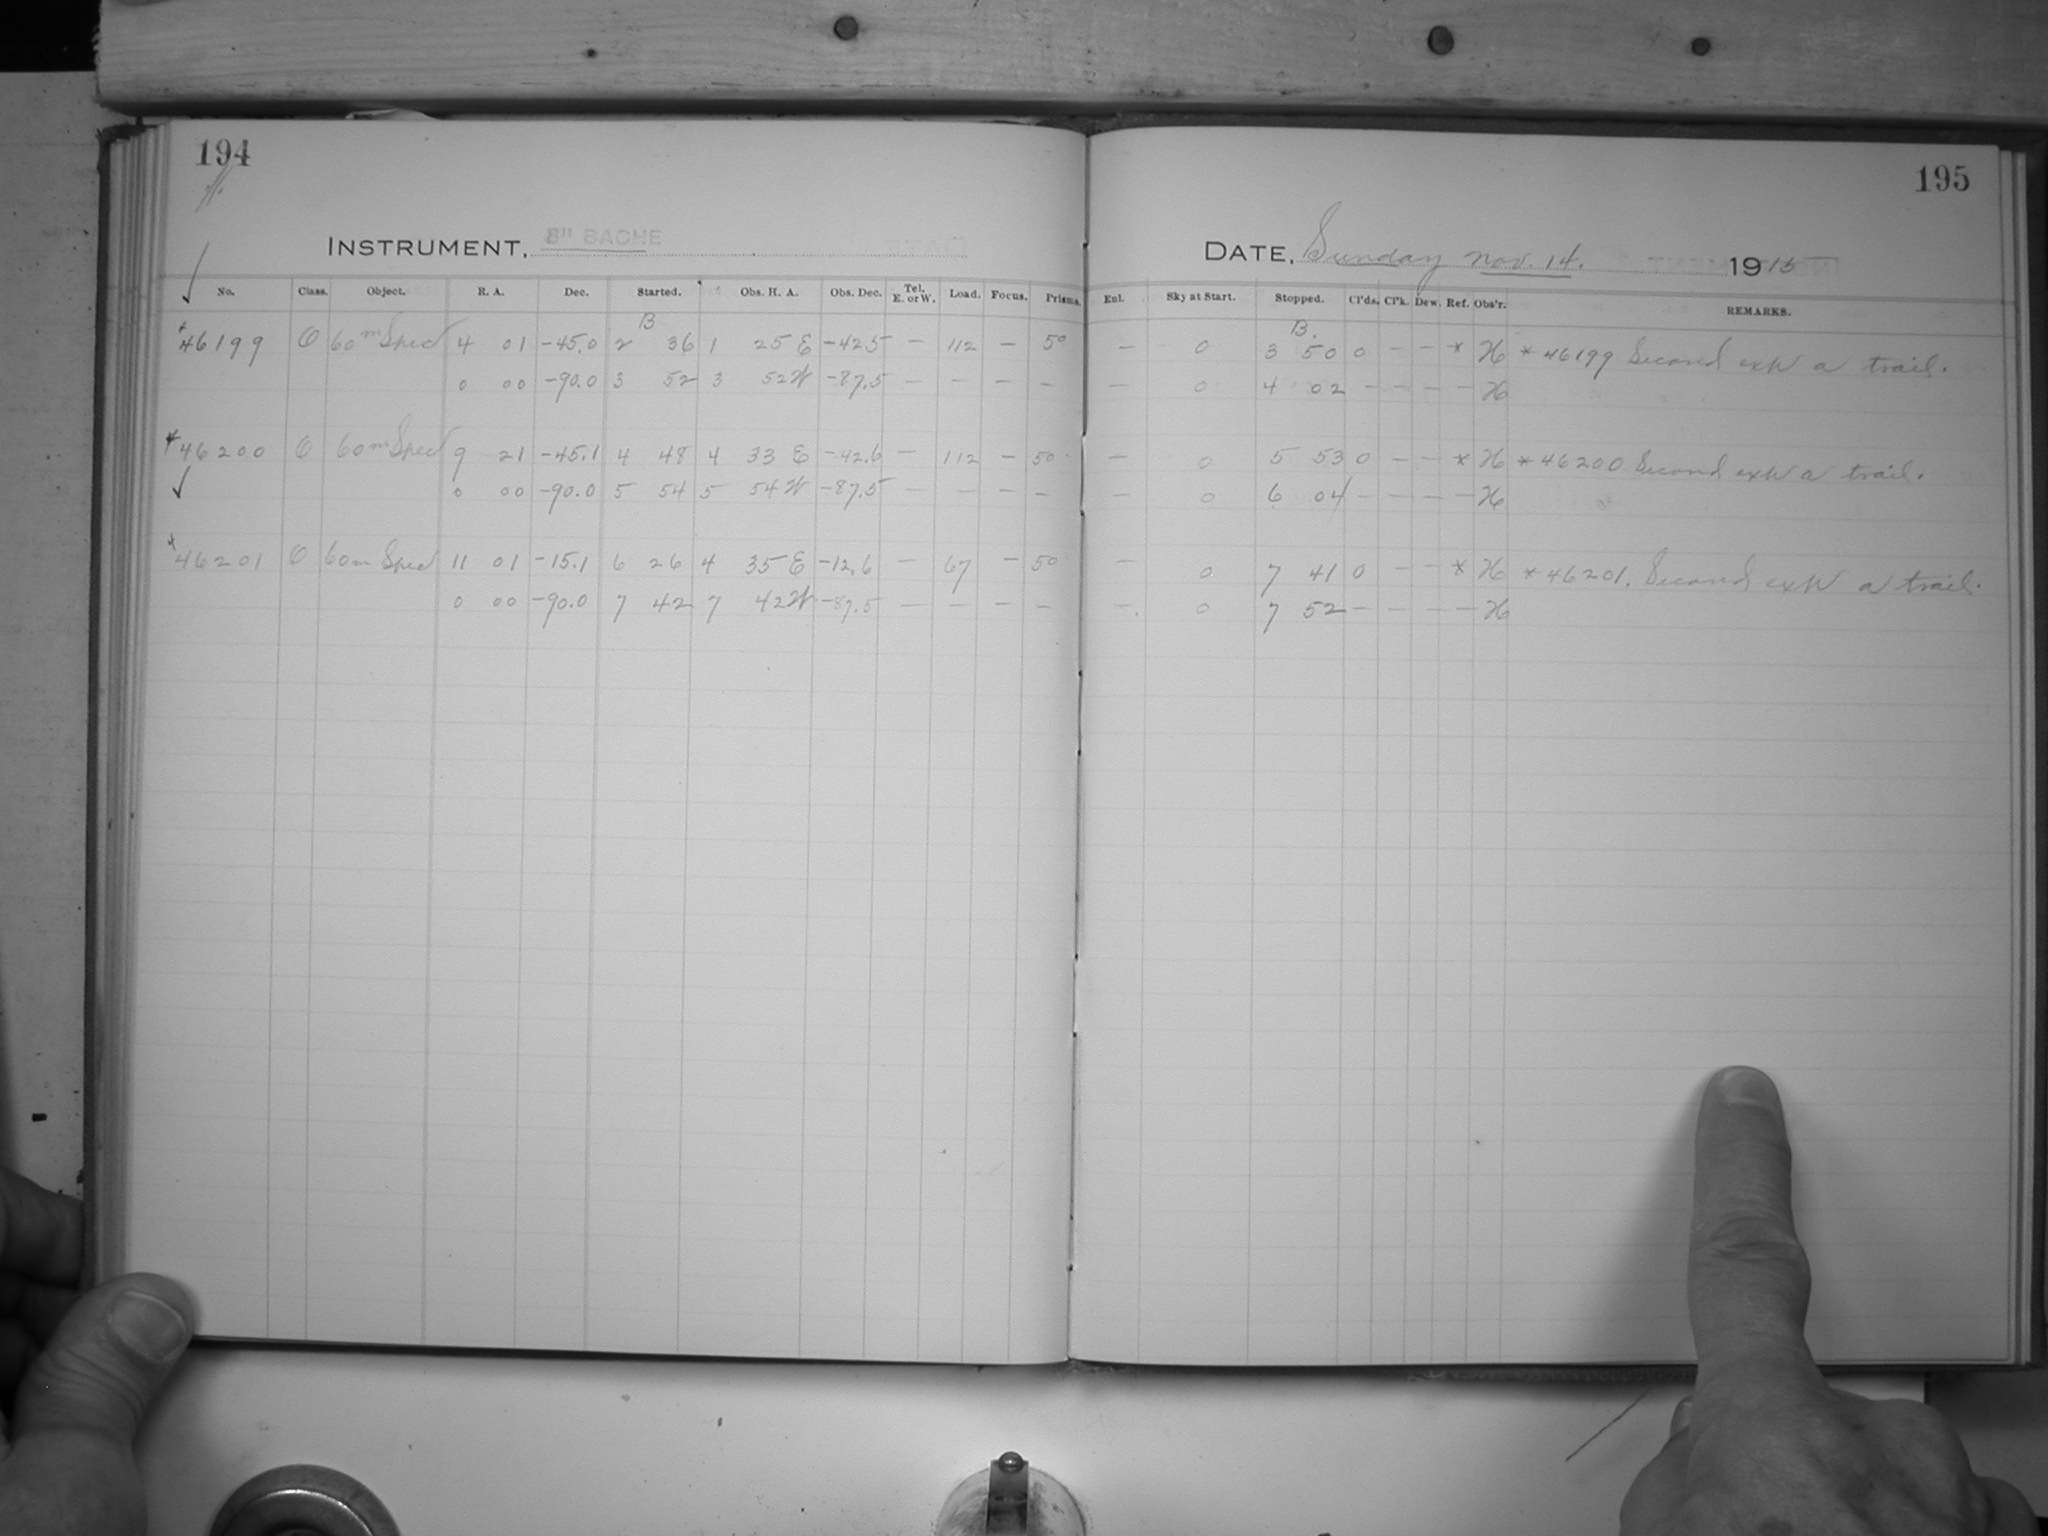 194
195
INSTRUMENT, 8" BACHE
DATE, Sunday Nov. 14. 1915
No. Class. Object. R. A. Dec. Started. Obs. H. A. Obs. Dec. Tel. E. or W. Load. Focus. Prisms. Enl. Sky at Start. Stopped. Cl'ds. Cl'k. Dew. Ref. Obs'r. REMARKS.
B B.
*46199 O 60m Spec 4 01 -45.0 2 36 1 25 E -42.5 — 112 — 50 — 0 3 50 0 - - * H *46199 Second exp a trail.
0 00 -90.0 3 52 3 52 W -87.5 — — — — — 0 4 02 - - - - H
*46200 O 60m Spec 9 21 -45.1 4 48 4 33 E -42.6 — 112 — 50 — 0 5 53 0 - - * H *46200 Second exp a trail.
0 00 -90.0 5 54 5 54 W -87.5 — — — — — 0 6 04 - - - - H
*46201 O 60m Spec 11 01 -15.1 6 26 4 35 E -12.6 — 67 — 50 — 0 7 41 0 - - * H *46201. Second exp a trail.
0 00 -90.0 7 42 7 42 W -87.5 — — — — — 0 7 52 - - - - H